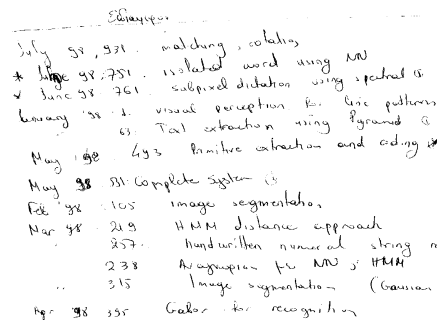 Ενδιαφέρον
July 98, 931. matching, rotation
* June 98, 751. isolated word using NN
✓ June 98. 761. subpixel dictation using spectral
January '98 1. visual perception for line patterns
63. Text extraction using Pyramid
May 98 493 Primitive extraction and coding
May 98 Complete System
Feb '98 105 image segmentation
Mar 98 219 HMM distance approach
257. handwritten numeral string
238 Αναγνώριση με NN & HMM
315 Image segmentation (Gaussian
Apr 98 395 Gabor for recognition